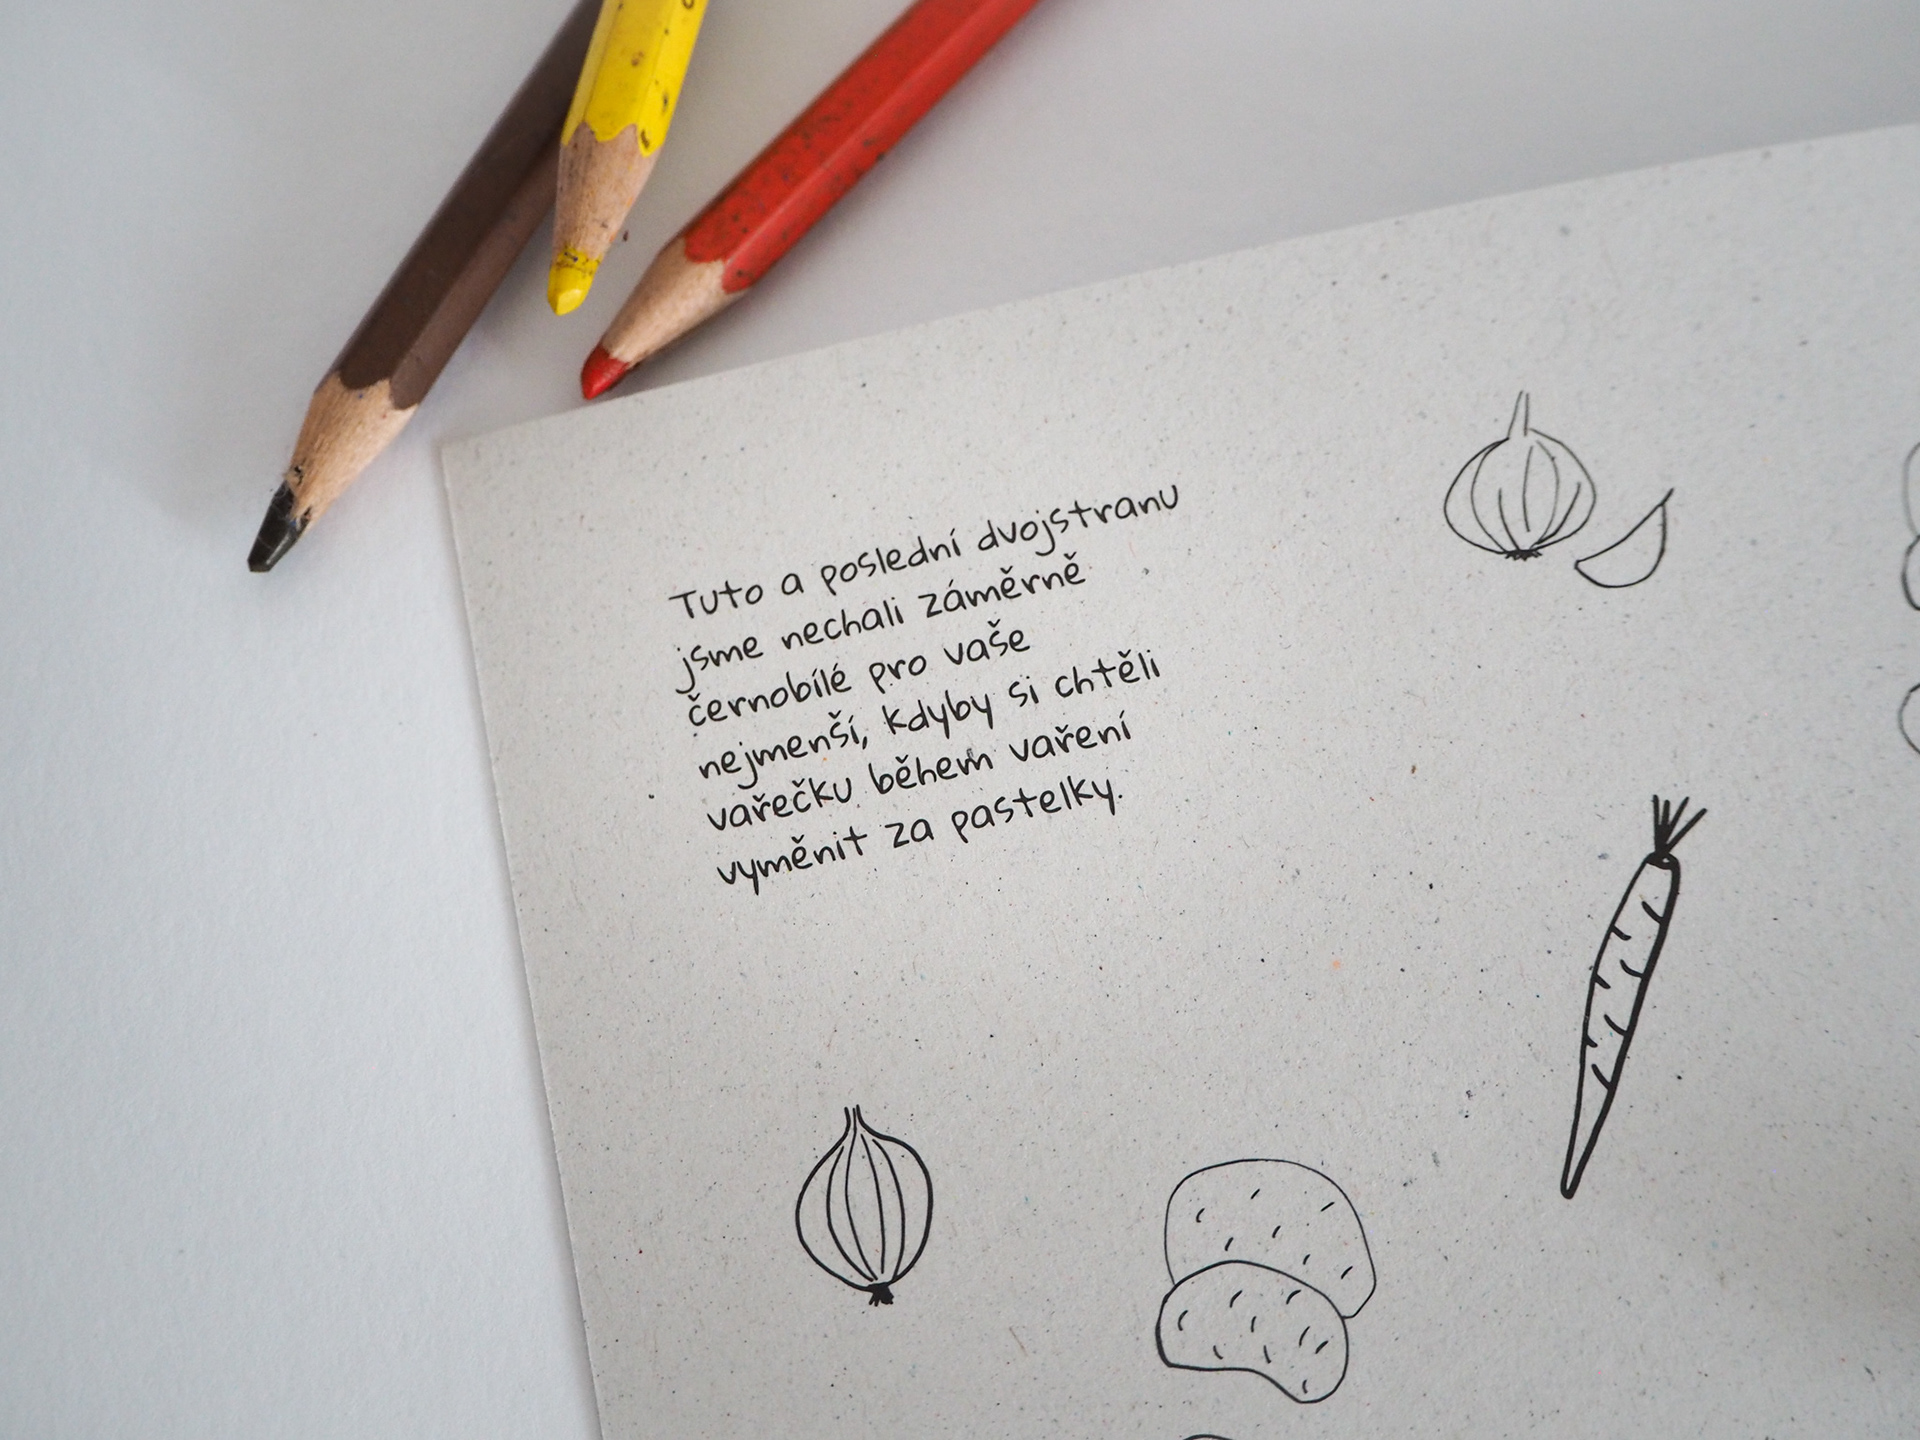 Tuto a poslední dvojstranu
jsme nechali záměrně
černobílé pro vaše
nejmenší, kdyby si chtěli
vařečku během vaření
vyměnit za pastelky.